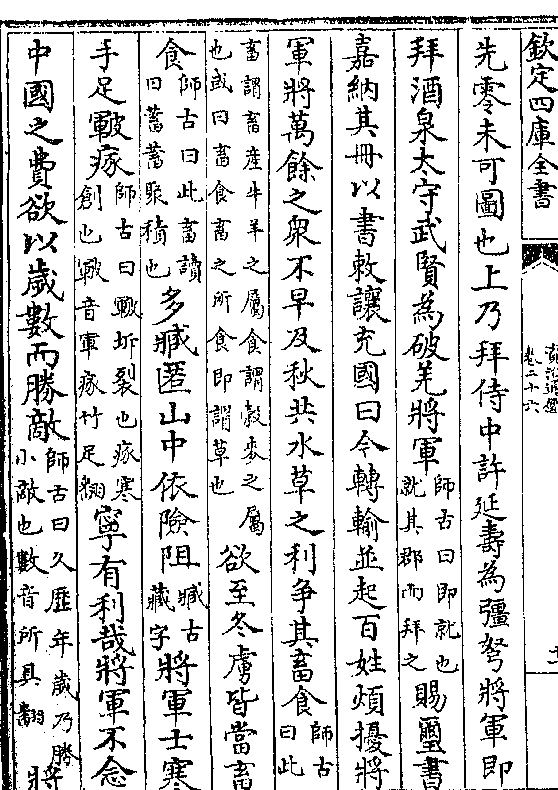 欽定四庫全書
卷二十六
先零未可圖也上乃拜侍中許延壽為彊弩將軍即
拜酒泉太守武賢為破羌將軍師古曰即就也就其郡而拜之賜璽書
嘉納其冊以書敕讓充國曰今轉輸並起百姓煩擾將
軍將萬餘之眾不早及秋共水草之利爭其畜食師古曰此
畜謂畜産牛羊之屬食謂穀麥之屬也或曰畜食畜之所食即謂草也欲至冬虜皆當畜
食師古曰此畜讀曰蓄蓄聚積也多臧匿山中依險阻臧古藏字將軍士寒
手足皸瘃師古曰皸坼裂也瘃寒創也皸音軍瘃竹足翻寧有利哉將軍不念
中國之費欲以歲數而勝敵師古曰久歷年歲乃勝小敵也數音所具翻將